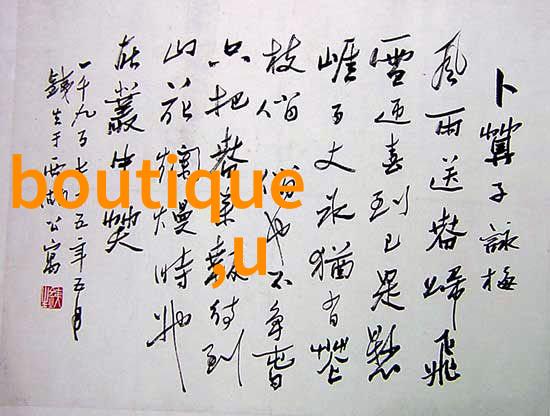 卜算子 詠梅
風雨送春歸飛
雪迎春到已是懸
崖百丈冰猶有花
枝俏俏也不爭春
只把春來報待到
山花爛熳時她
在叢中笑
一千九百七十五年五月
錢生于西湖公寓
boutique
,u